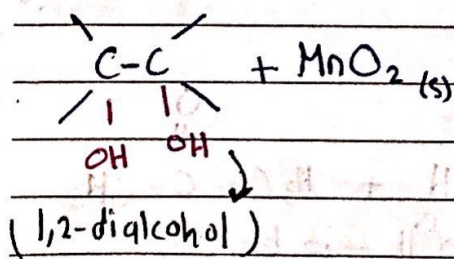 C-C + MnO2 (s)
OH OH
(1,2-dialcohol)